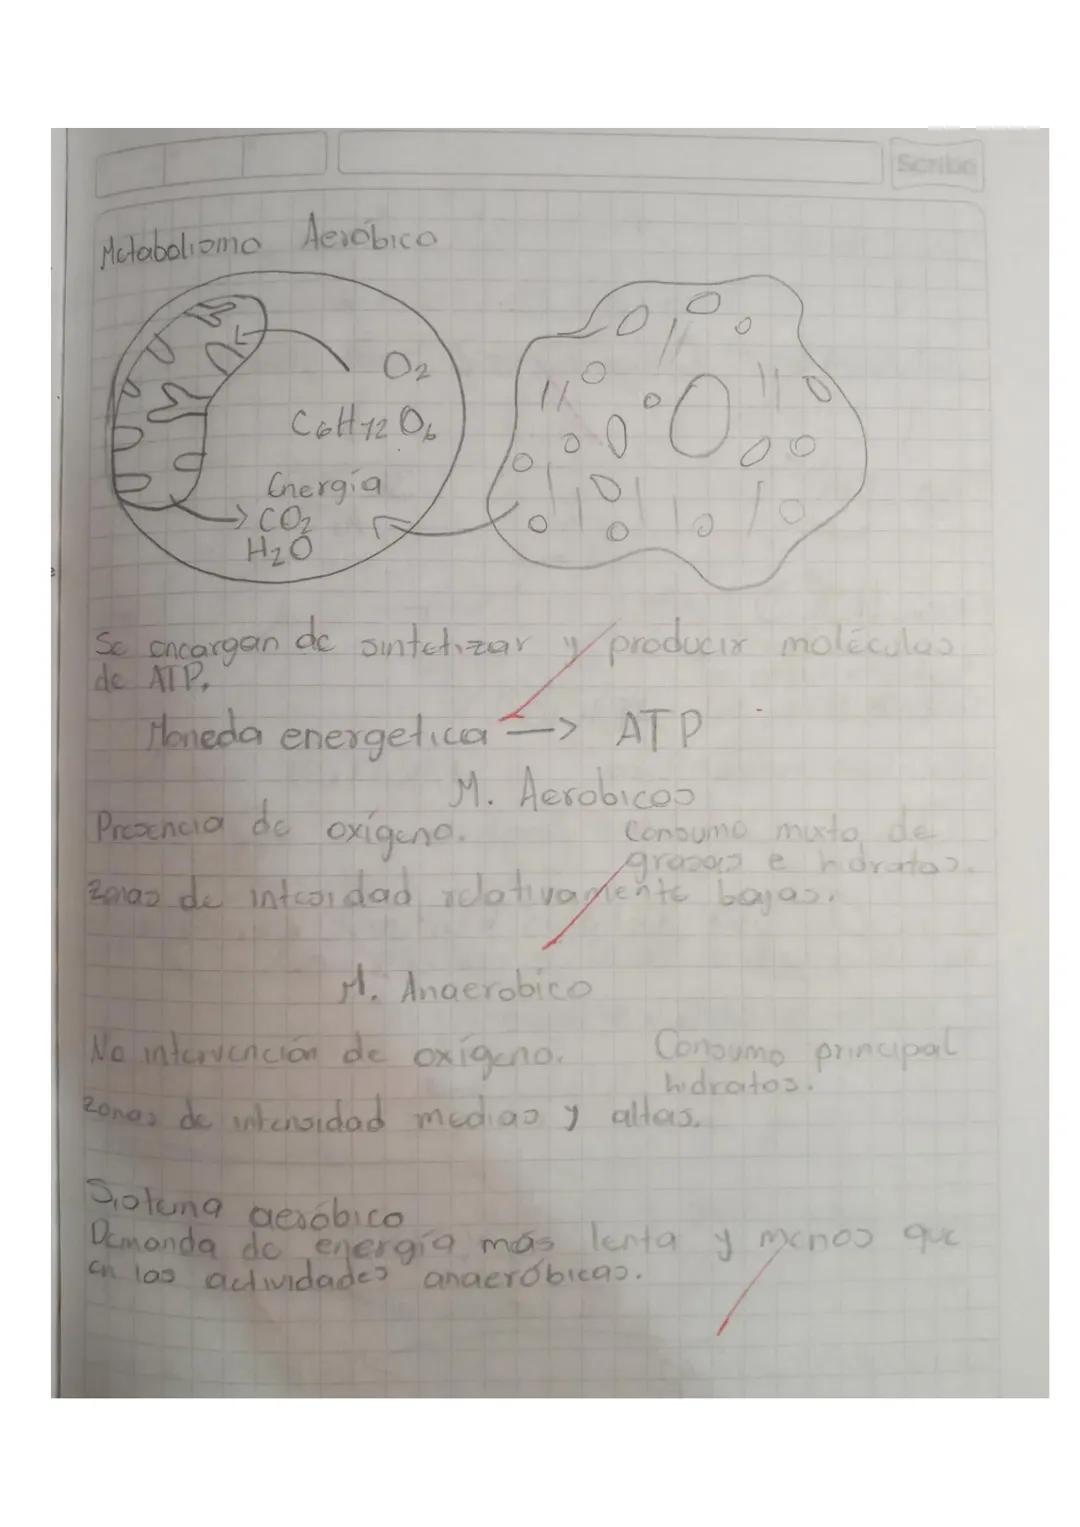 Scribe
Metabolismo Aeróbico
O2
C6H12O6
Energía
CO2
H2O
Se encargan de sintetizar y producir moléculas
de ATP.
Moneda energetica —> ATP
M. Aerobicos
Presencia de oxígeno.
Consumo mixto de
grasas e hidratos.
zonas de intesidad relativamente bajas.
M. Anaerobico
No intervención de oxígeno.
Consumo principal
hidratos.
zonas de intensidad medias y altas.
Sistema aeróbico
Demanda de energía más lenta y menos que
en las actividades anaeróbicas.